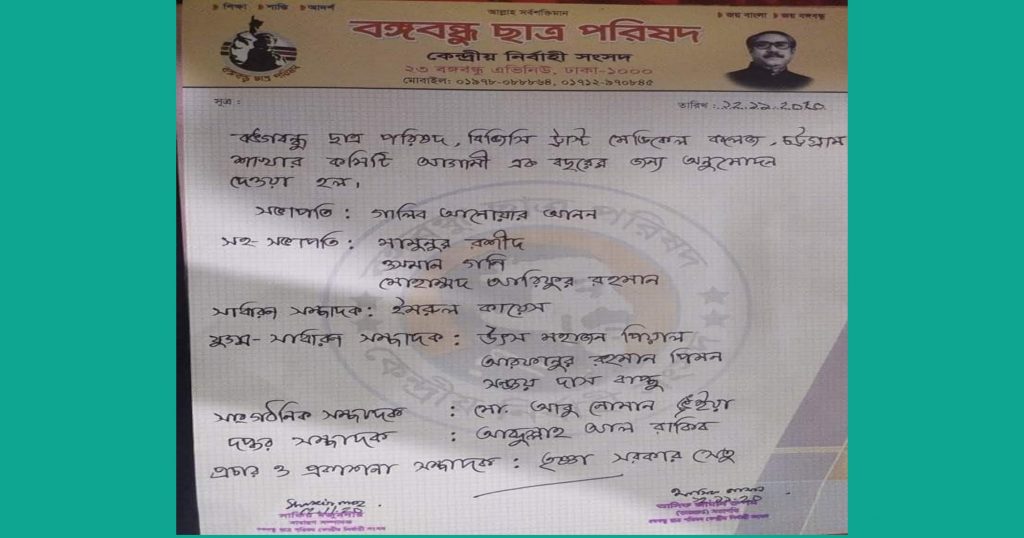 শিক্ষা শান্তি আদর্শ
আল্লাহ সর্বশক্তিমান
জয় বাংলা জয় বঙ্গবন্ধু
বঙ্গবন্ধু ছাত্র পরিষদ
কেন্দ্রীয় নির্বাহী সংসদ
২৩ বঙ্গবন্ধু এভিনিউ, ঢাকা-১০০০
মোবাইল: ০১৯৭৮-০৮৮৮৬৪, ০১৭১২-৯৭০৮৪৫
বঙ্গবন্ধু ছাত্র পরিষদ
সূত্র :
তারিখ : ১২.১১.2020
বঙ্গবন্ধু ছাত্র পরিষদ, বিজিসি ট্রাস্ট মেডিকেল কলেজ, চট্টগ্রাম
শাখার কমিটি আগামী এক বছরের জন্য অনুমোদন
দেওয়া হল।
সভাপতি : গালিব আনোয়ার আনন
সহ-সভাপতি : মামুনুর রশীদ
ওসমান গণি
মোহাম্মদ আরিফুর রহমান
সাধারণ সম্পাদক : ইমরুল কায়েস
যুগ্ম-সাধারণ সম্পাদক : উৎস মহাজন পিয়াল
আরফানুর রহমান পিমন
দাস বাপ্পু
সাংগঠনিক সম্পাদক : মো. আবু নোমান ভূঁইয়া
দপ্তর সম্পাদক : আব্দুল্লাহ আল রাকিব
প্রচার ও প্রকাশনা সম্পাদক : তৃষ্ণা সরকার সেতু
সাধারণ সম্পাদক
বঙ্গবন্ধু ছাত্র পরিষদ কেন্দ্রীয় নির্বাহী সংসদ
(ভারপ্রাপ্ত) সভাপতি
বঙ্গবন্ধু ছাত্র পরিষদ কেন্দ্রীয় নির্বাহী সংসদ